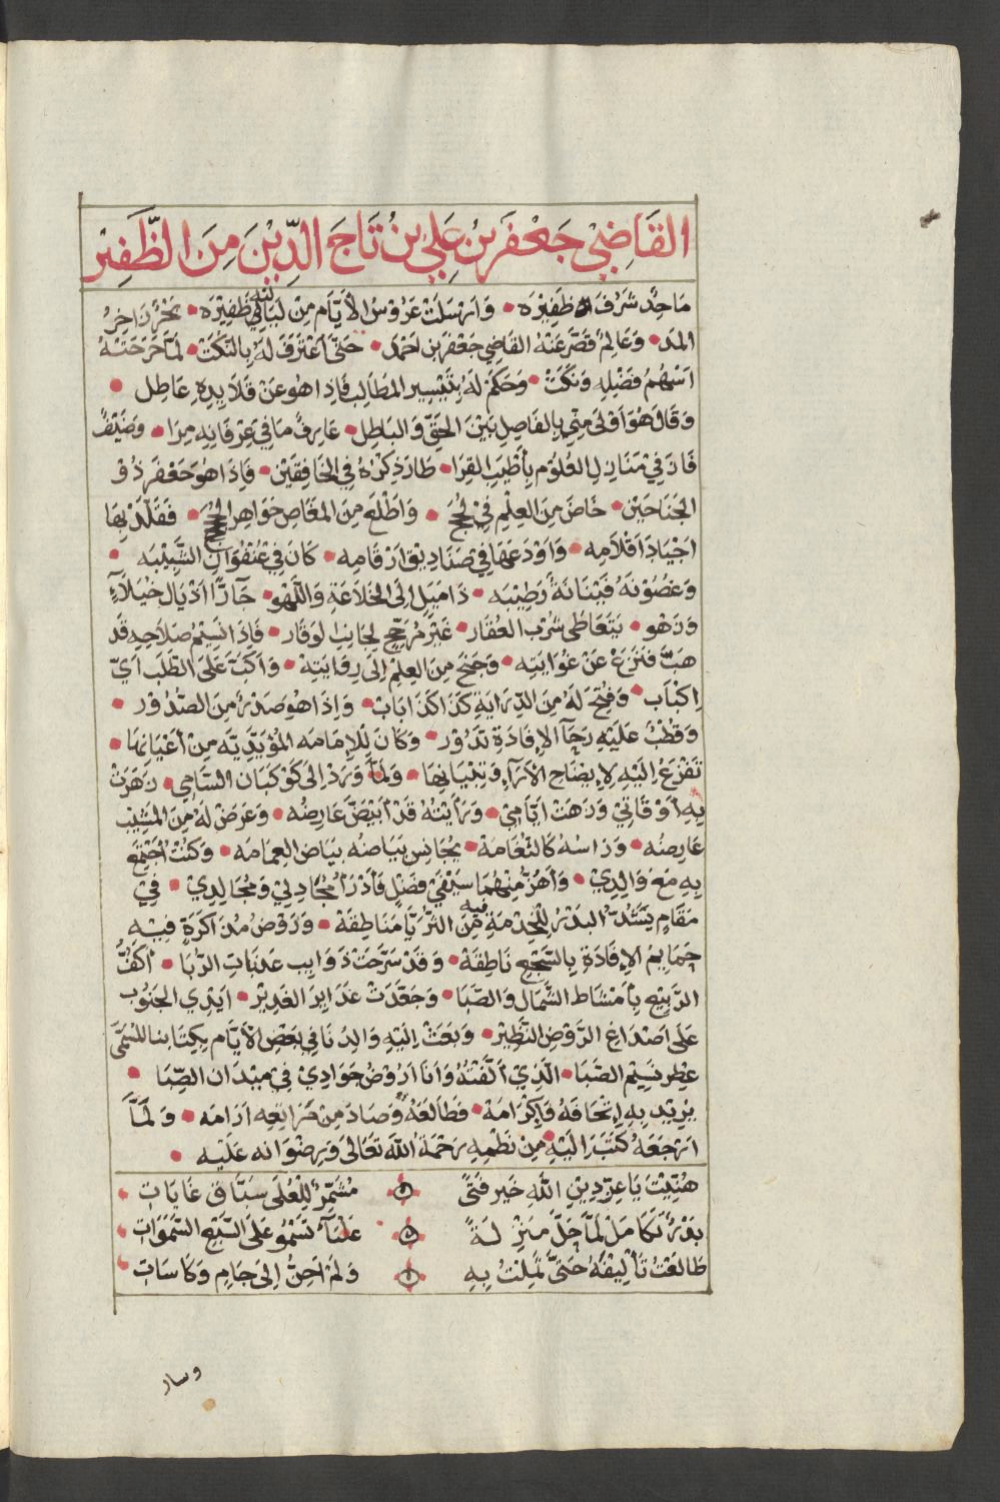 القَاضِي جَعْفَر بن عَلِي بن تَاج الدِّيْنِ مِنَ الظَّفِير
مَاجِدٌ شَرُفَ به ظَفِيْرَه • وَارْسَلَتْ عَرُوْسُ الأَيَّام مِنْ لَيَالِيْهِ ظَفِيْرَه • بَحْرٌ زَاخِرُ
المَد • وَعَالِمٌ قَصَّرَعَنْهُ القَاضِي جَعْفَر بن احْمَد • حَتَّى اعْتَرَفَ لَهُ بِالنُّكَتْ • لَمَّا جَرَحَتْهُ
اَسْهُمُ فَضْلِهِ وَنَكَتْ • وَحَكَمَ لَهُ بِتَيْسِيرِ المَطَالِبِ فَاِذَا هُوَ عَنْ قَلَايِدِهِ عَاطِل •
وَقَالَ هُوَ اَوْلَى مِنِّي بِالفَاصِلِ بَيْنَ الحَقِّ وَالبَاطِل • عَارِفٌ مَا فِي عِرْفَانِهِ مِرَا • وَضَيْفٌ
فَازَ فِيْ مَنَازِلِ العُلُوْمِ بِأَطْيَبِ القِرَا • طَارَ ذِكْرُهُ فِي الخَافِقَيْن • فَاِذَا هُوَ جَعْفَر ذُوْ
الجَنَاحَيْن • خَاضَ مِنَ العِلْمِ فِيْ لُجَجْ • وَاَطْلَعَ مِنَ المَغَاصِ جَوَاهِر الحُجَجْ • فَقَلَّدَ بِهَا
اَجْيَادَ اَقْلَامِه • وَاَوْدَعَهَا فِي صَنَادِيْقِ اَرْقَامِه • كَانَ فِيْ عُنْفُوَانِ الشَّبِيْبَه •
وَغُصُوْنَهُ فَيْنَانَةٌ رَطِيْبَه • ذَا مَيْلٍ اِلَى الخَلَاعَةِ وَاللَّهْو • جَارًّا اَذْيَالَ خُيَلَآءٍ
وَزَهْو • يَتَعَاطَى شُرْبَ العُقَار • غَيْرَ مُرَجِّحٍ لِجَانِبِ الوَقَار • فَاِذَا نَسِيْمُ صَلَاحِهِ قَدْ
هَبَّ فَنَزَعَ عَنْ غَوَايَتِه • وَجَنَحَ مِنَ العِلْمِ اِلَى رِقَايَتِهْ • وَاَكَبَّ عَلَى الطَّلَبِ اَيَّ
اِكْبَاب • وَفُتِحَ لَهُ مِنَ الدِّرَايَةِ كَذَا كَذَا بَابْ • وَاِذَا هُوَ صَدْرٌ مِنَ الصُّدُوْر •
وَقُطْبٌ عَلَيْهِ رَحَآ الإِفَادَةِ تَدُوْر • وَكَانَ لِلإِمَامَه المُؤَيَّدِيَّه مِنْ اَعْيَانِهَا •
تَفْزَعُ اِلَيْهِ لِإِيضَاحِ الأَرَآءِ وَتِبْيَانِهَا • وَلَمَّا وَرَدْ اِلَى كَوْكَبَان السَّامِي • زَهَرَتْ
بِهِ اَوْقَاتِيْ وَزَهَتْ اَيَّامِيْ • وَرَأيْتُهُ قَدْ اَبْيَضَّ عَارِضُه • وَعَرَضَ لَهُ مِنَ المَشِيْبِ
عَارِضُه • وَرَاسُهُ كَالثَّغَامَهْ • يُجَانِسُ بَيَاضُه بيَاضَ العِمَامَه • وَكُنْتُ اَجْتَمِعُ
بِهِ مَعَ وَالِدِيْ • وَاَهُزُّ مِنْهُمَا سَيْفَيْ فَضْلٍ فَاَذْرَأ مُجَادِلِيْ وَمُجَالِدِيْ • فِيْ
مَقَامٍ يَشُدُّ البَدْرُ لِلْخِدْمَةِ فِيهِ مِنَ الثُّرَيَّا مَنَاطِقَهْ • وَرَوْضِ مُذَاكَرَةٍ فِيْهِ
حَمَايِمُ الإِفَادَةِ بِالسَّجْعِ نَاطِقَهْ • وَقَدْ سَرَّحَتْ ذَوَايِب عَذَبَاتِ الرُّبَا • اَكُفُّ
الرَّبِيْع بِاَمْشَاط الشَّمَال وَالصَّبَا • وَجَعَّدَتْ غَدَايِرَ الغَدِيْر • اَيْدِي الجَنُوْب
عَلَى اَصْدَاغِ الرَّوْضِ النَّظِيْر • وَبَعَثَ اِلَيْهِ وَالِدُنَا فِي بَعْضِ الأَيَّام بِكِتَابِنا المُسَمَّى
عِطْر نَسِيْم الصَّبَا • الَّذِي اَلَّفْتُهُ وَاَنَا اَرُوْضُ جَوَادِيْ فِي مِيْدَان الصِّبَا •
يُرِيْدُ بِهِ اِتْحَافَهُ وَاِكْرَامَهْ • فَطَالَعَهُ وَصَادَ مِنْ مَرَاتِعِه اَرَامَه • وَلَمَّا
ارْجَعَهُ كَتَبَ اِلَيْهِ مِنْ نَظْمِه رَحْمَةُ اللّه تَعَالَى وَرِضْوَانه عَلَيْه •
هُنِّيْتَ يَا عِزّ دِيْنِ اللّهِ خَيْر فَتًى مُشَمِّرٌ لِلْعُلَى سَبَّاق غَايَاتِ
بَدْرٌ تَكَامَلَ لَمَّا حَلَّ مَنْزِلَةً عَلْيَآء تَسْمُو عَلَى السَّبْعِ السَّمَوَات
طَالَعْتُ تَأْلِيْفَهُ حَتَّى ثَمِلْتُ بِهِ وَلَمْ اَحِنَّ اِلَى جَامٍ وَكَاسَاتِ
وسار